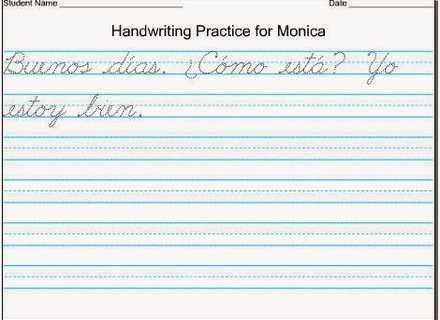 Student Name ____________________ Date ______________
Handwriting Practice for Monica
Buenos días. ¿Cómo está? Yo
estoy bien.